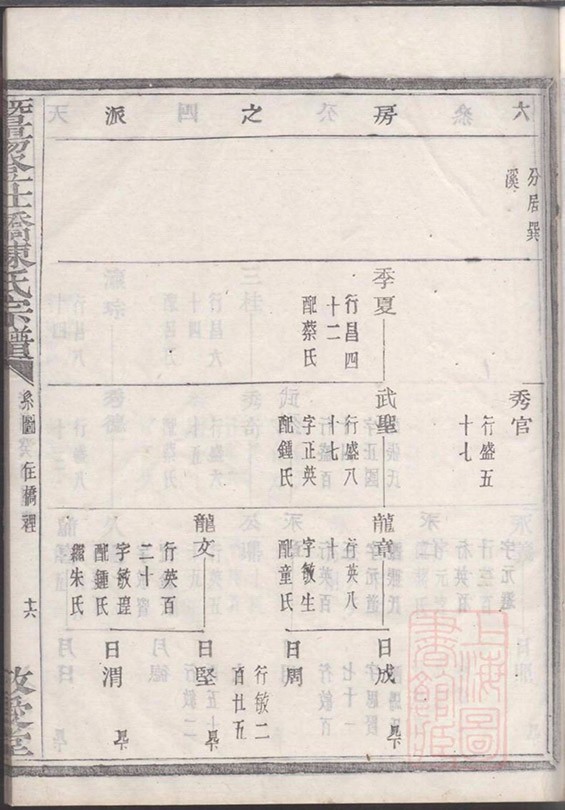 六房之派
分居巽
溪
季夏
行昌四
十二
配蔡氏
秀官
行盛五
十七
武聖
行盛八
十七
字正英
配鍾氏
龍章
行英八
十
字敏生
配童氏
龍文
行英百
二十
字敏瑝
配鍾氏
繼朱氏
日成
日周
行敏二
百廿五
日堅
日渭
暨陽
橋陳氏宗譜
系圖
在橋裡
十六
敬愛堂
上海圖書館藏